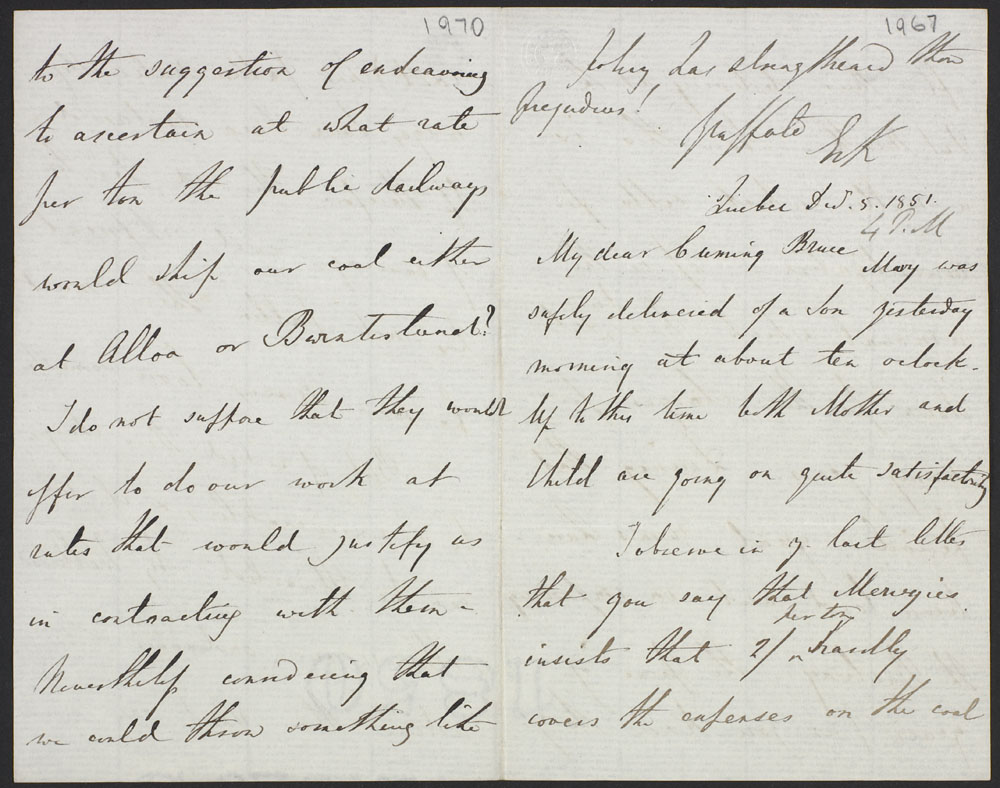 1970
to the suggestion of endeavoring
to ascertain at what rate
per ton the public Railways
would ship our coal either
at Alloa or Burntisland?
I do not suppose that they would
offer to do our work at
rates that would justify us
in contracting with them -
Nevertheless considering that
we could throw something like
1967
has strengthened
prejudices!
Quebec Dec. 5. 1851.
4 P.M
My dear Cuming Bruce Mary was
safely delivered of a Son yesterday
morning at about ten oclock.
Up to this time both Mother and
Child are going on quite satisfactorily
I observe in yr. last letter
that you say that Menzies
per ton
insists that 2/ ^ hardly
covers the expenses on the coal